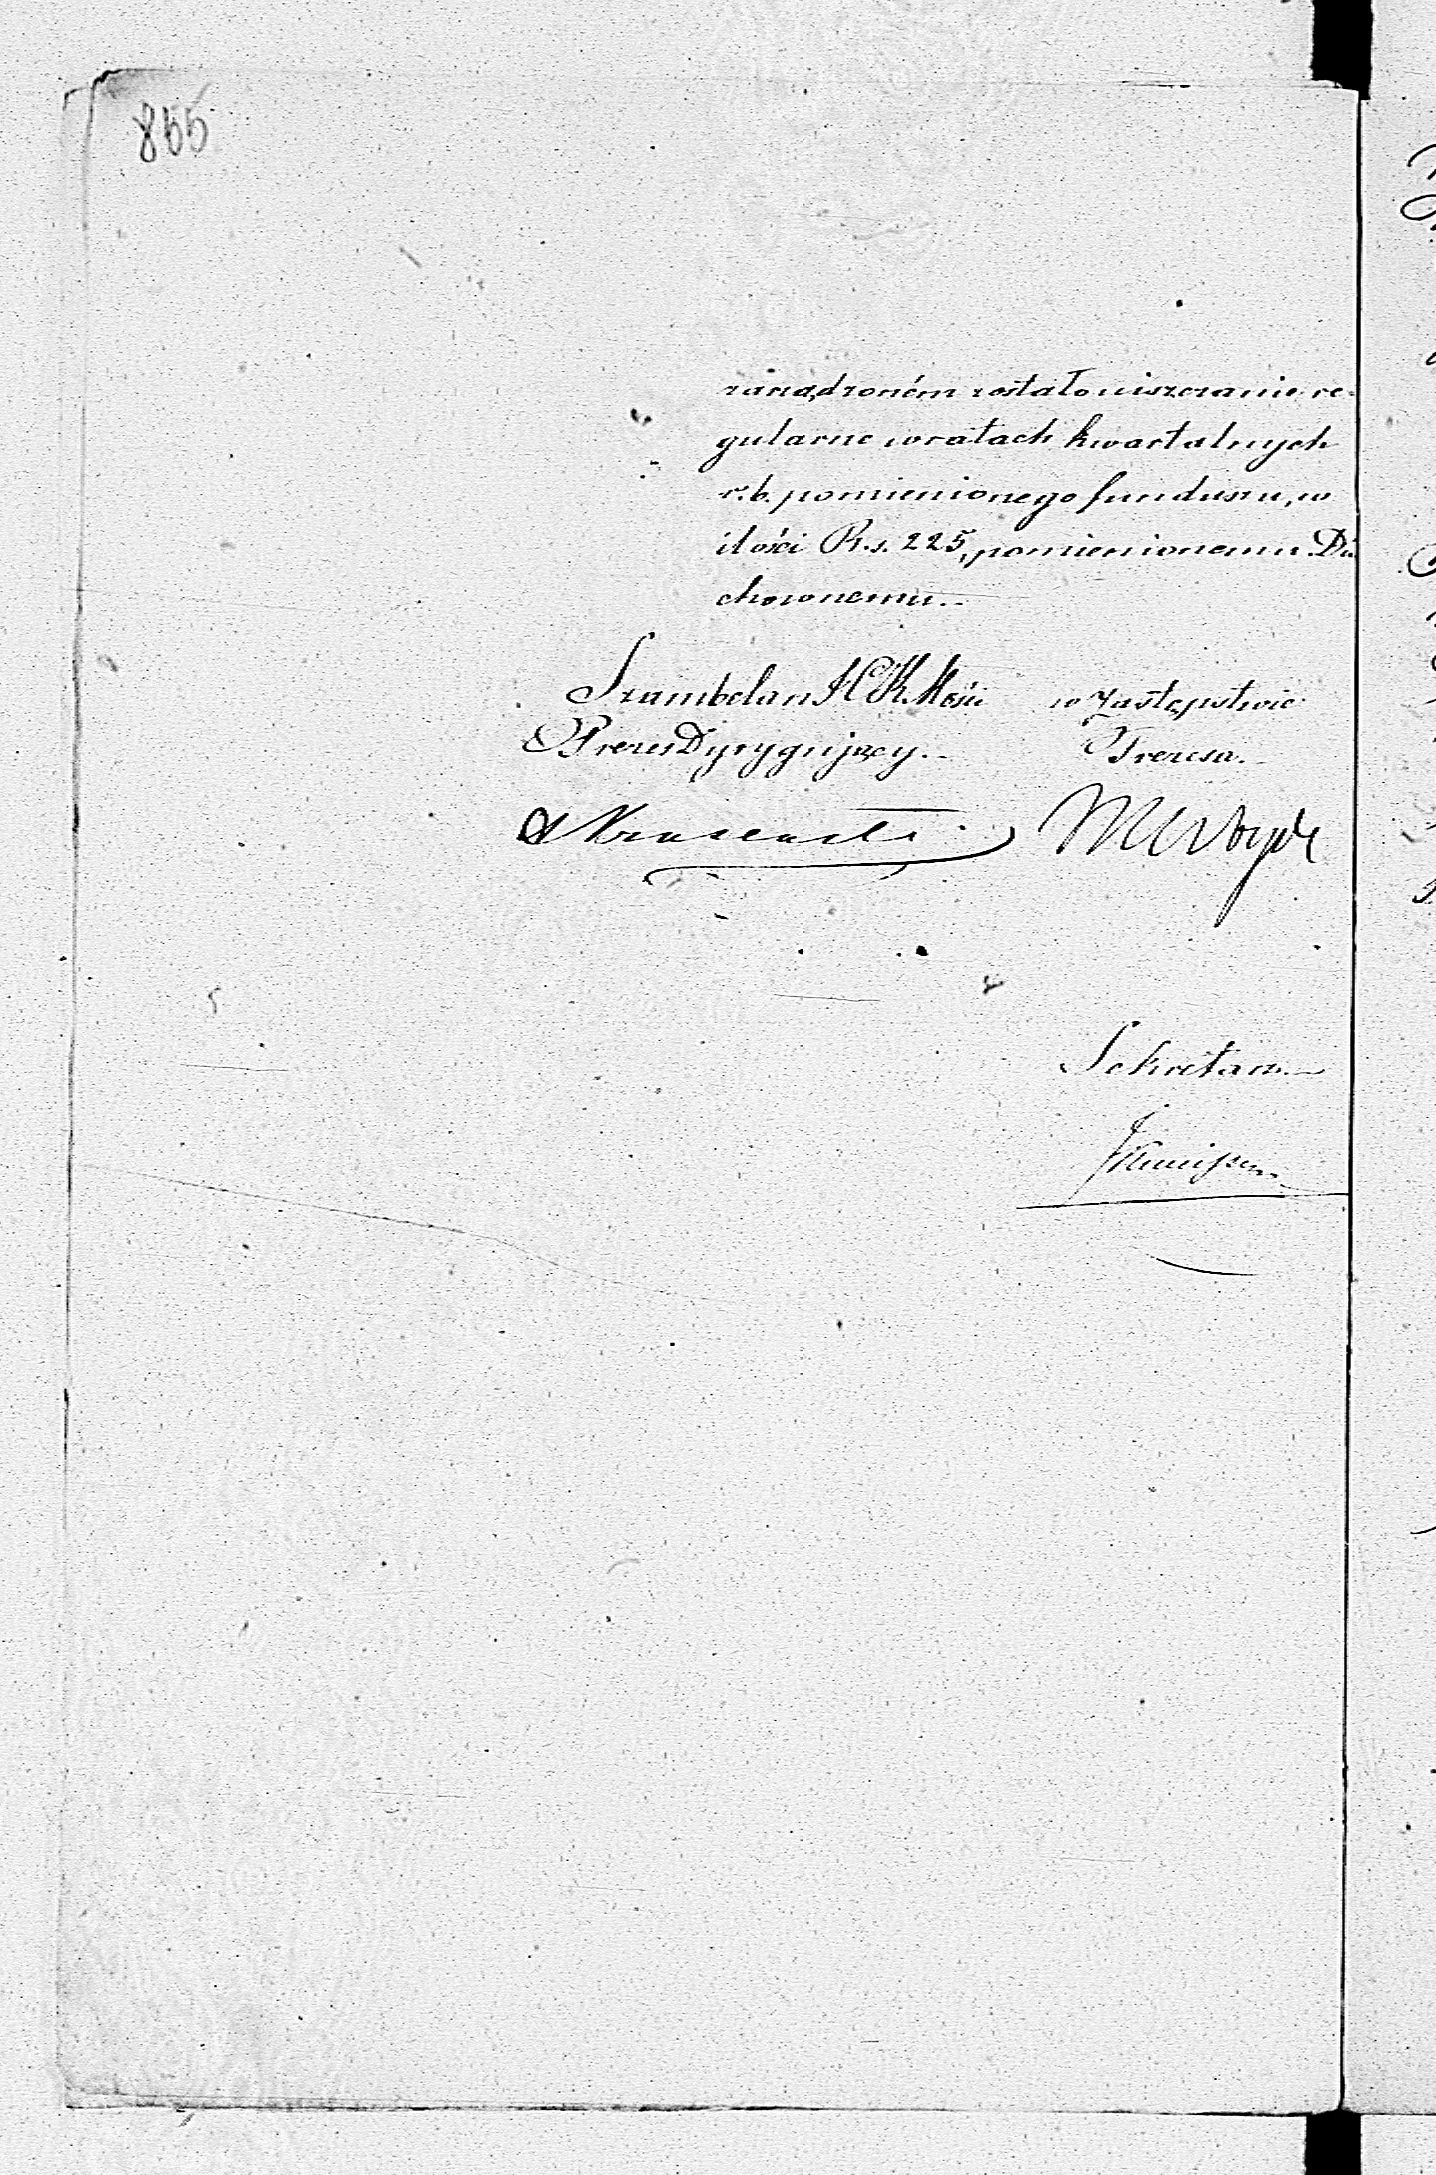 855
zarządzoném zostało uiszczanie re-
gularne w ratach kwartalnych
r. b. pomienionego funduszu, w
ilości R. s. 225, pomienionemu Du
chownemu.
Szambelan J C K Mości
Prezes Dyrygujący.
w zastępstwie
Prezesa.
Sekretarz